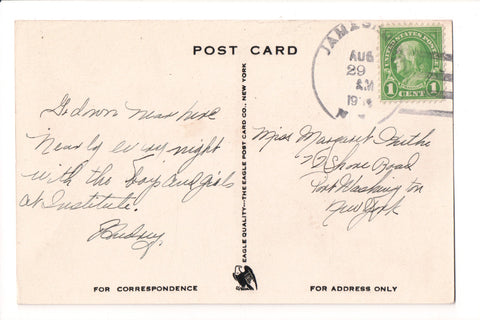 POST CARD
JAMES
AUG
29
AM
19
N
UNITED STATES POSTAGE
FRANKLIN
1 CENT 1
Go down near here
nearly every night
with the boys and girls
at Institute.
Audrey
EAGLE QUALITY—THE EAGLE POST CARD CO., NEW YORK
Miss Margaret
Shore Road
Port Washington
New York
FOR CORRESPONDENCE
FOR ADDRESS ONLY